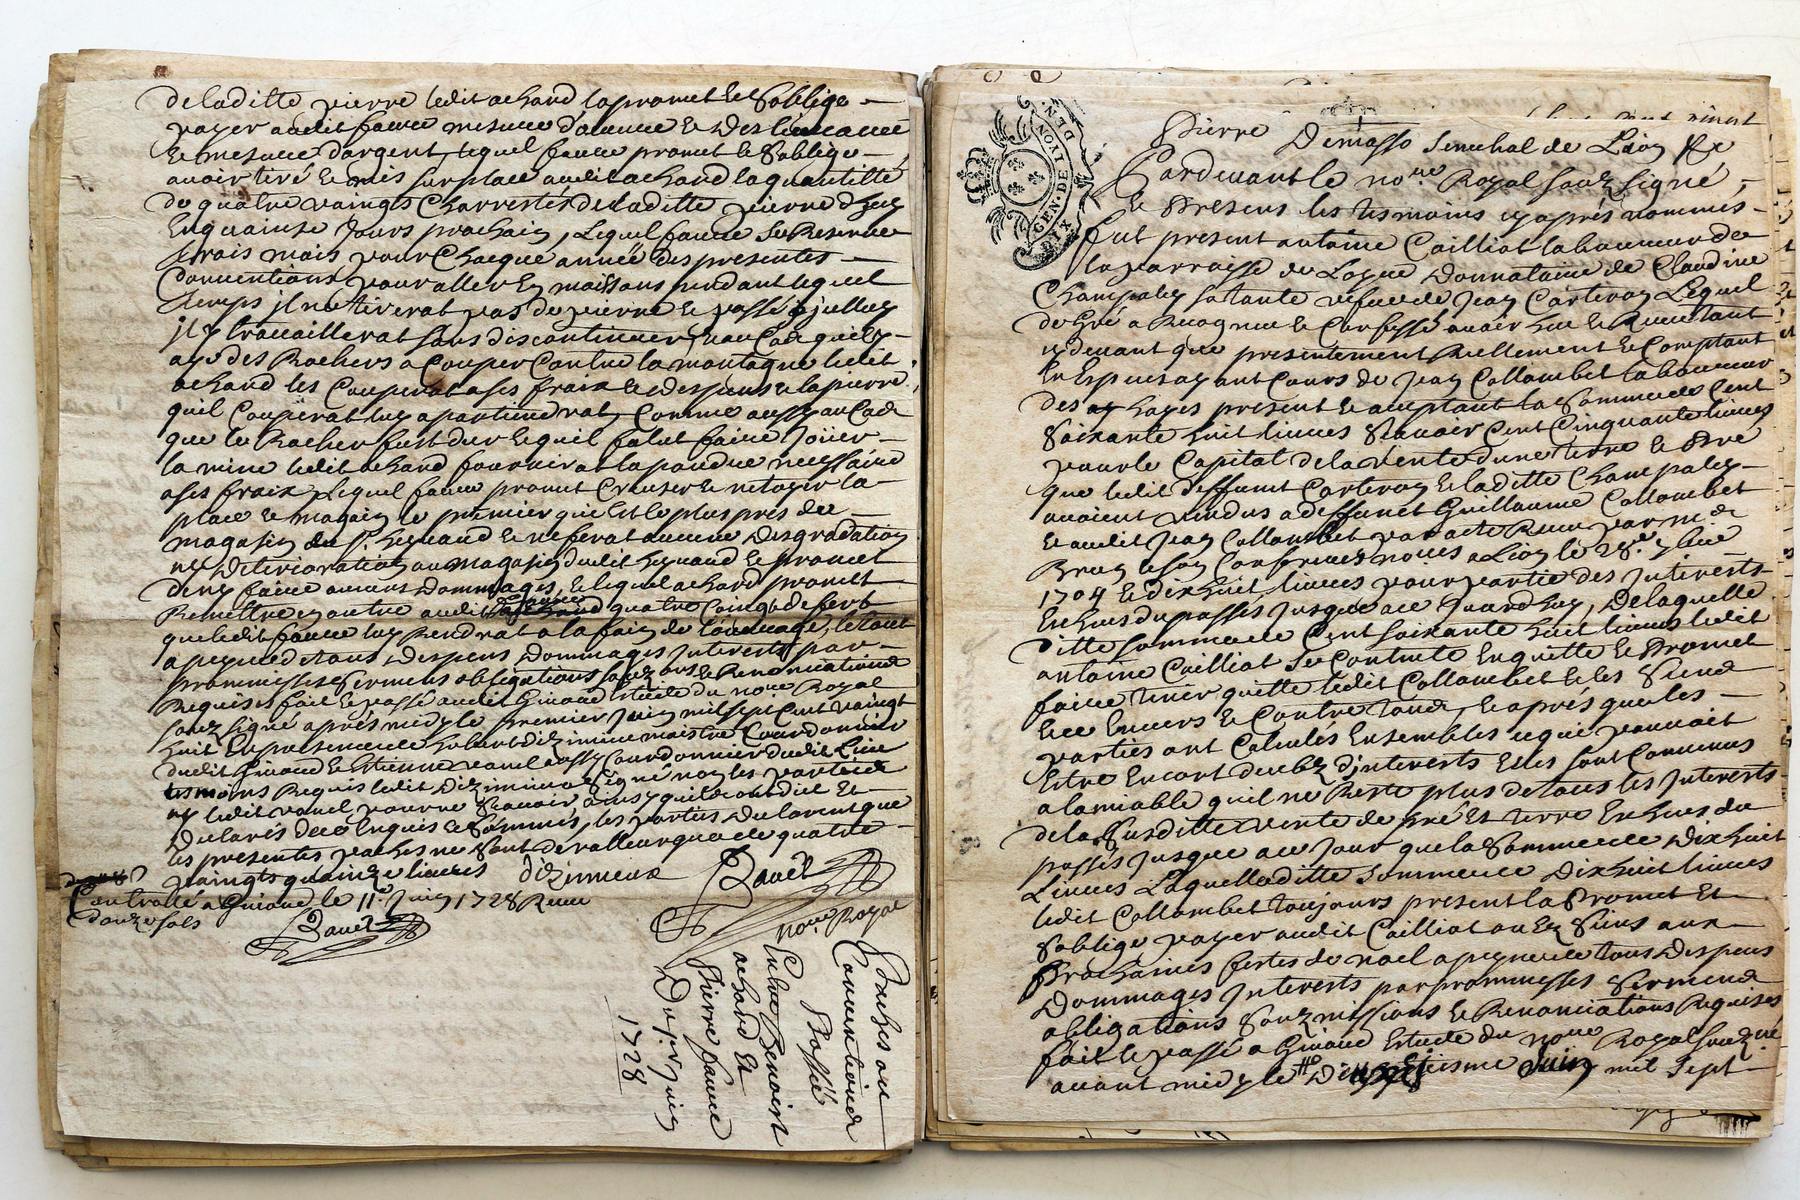 de laditte pierre ledit achard la promet et s'oblige
payer audit faure mesure d'avance et des
et mesure d'argent, lequel faure promet et s'oblige
avoir tiré et mis sur place audit achard la quantitté
de quatre vaingts charrettés de laditte pierre d'huy
En quainse Jours prochain, Lequel faure se Reserve
trois mois pour Chacque année des presentes
Conventions pour aller En moissons pendant lequel
temps jl ne tirerat pas de pierre et passé
jl y travaillerat sans discontinuer, au Cas quil y
aye des Rochers a Couper Contre la montagne ledit
achard les Couperat a ses fraix et despens et la pierre
quil Couperat luy apartiendrat, Comme aussy au Cas
que le Rocher fust dur et quil falut faire Joüer
la mine ledit achard fournirat la poudre necessaire
a ses fraix, Lequel faure promet Creuser et netoyer la
place et magasin le premier qui Est le plus près du
magasin du Sr. et ne ferat aucune desgradation
ny Deterioration au magasin dudit et promet
de ny faire aucuns Dommages, et lequel achard promet
Remettre en outre audit faure quatre Coings de fert
que ledit faure luy Rendrat a la fain de l'ouvrage, le tout
a peyne de tous despens Dommages Interests par
prommesses serments obligations souzmis et Renonciations
Requises fait et passé audit Givord Estude du nore Royal
souzsigné après midy le premier Juin mil sept Cent vaingt
huit En presence de hubert dizimieux maistre Courdonnier
dudit Givord et Estienne vanel aussy Courdonnier dudit Lieu
tesmoins Requis ledit dizimieux signé non les parties
ny ledit vanel pour ne sçavoir, ainsy quils ont dit Et
declarés de ce Enquis et sommés, les parties declarent que
les presentes paches ne sont de valleur que de quatre
vaingts quainze livres dizimieux
Controllé a Givord le 11e. Juin 1728 Receu
douze sols
nore. Royal
Paches ou
Conventions
Passéés
Entre Benoist
achard Et
Pierre faure
Du pr. Juin
1728
GEN. DE LYON
DIX DEN.
Pierre Demasso Senechal de Lion &c
Pardevant le nore. Royal souz signé,
Et Presens les tesmoins cy après nommés
fut present antoine Cailliot laboureur de
la parroisse de Donnataire de Claudine
Champaley sa tante vefve de Jean Carteron Lequel
de Gré a Recogneu et Confessé avoir heu et Receu tant
cy devant que presentement Reellement et Comptant
En Especes ayant Cours de Jean Collombet laboureur
des hayes present et acceptant la somme de Cent
soixante huit livres sçavoir Cent Cinquante livres
pour le Capital de la vente d'une terre et Pré
que ledit deffunt Carteron et laditte Champaley
avoient vendus a deffunct Guillaume Collombet
et audit Jean Collombet par acte Receu par me.
Brun et son Confrere noires a Lion le 28e.
1704 et dix huit livres pour partie des Interests
Escheus du passés Jusque a ce Jourd'huy, De laquelle
ditte somme de Cent soixante huit livres ledit
antoine Cailliot se Contente En quitte et Promet
faire tenir quitte ledit Collombet et les siens
Envers et Contre tous, et après que les
parties ont Calculés Ensembles ce qui pouvoit
Estre Encore deub d'interests Elles sont Convenues
a lamiable qu'il ne Reste plus de tous les Interests
de la susditte vente de pré Et terre Escheus du
passés Jusque a ce Jour que la somme de Dix huit
Livres Laquelle ditte somme de Dix huit livres
ledit Collombet toujours present la Promet Et
s'oblige payer audit Cailliot ou Ez siens aux
Prochaines festes de noel a peyne de tous Despens
Dommages Interests par prommesses serments
obligations souzmissions et Renonciations Requises
fait et passé a Givord Estude du nore Royal souzsigné
avant midy le Juin mil sept